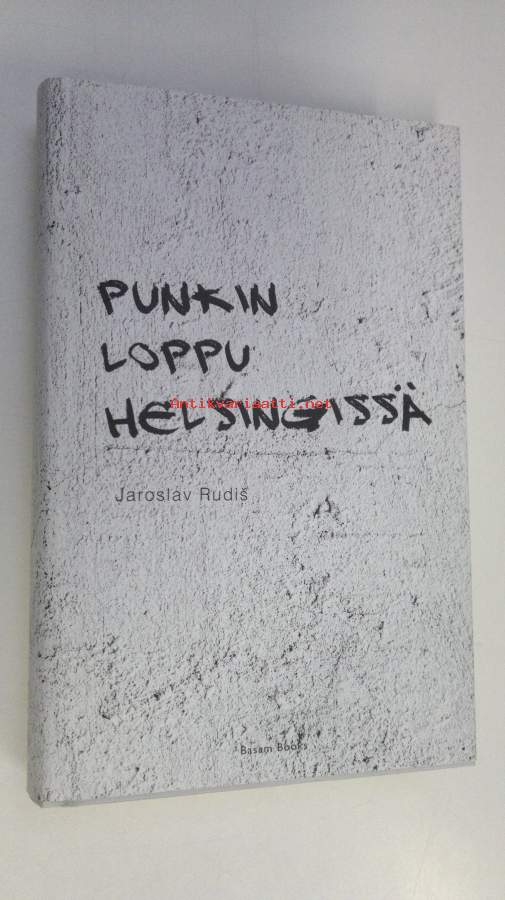 PUNKIN
LOPPU
HELSINGISSÄ
Antikvariaatti.net
Jaroslav Rudiš
Basam Books